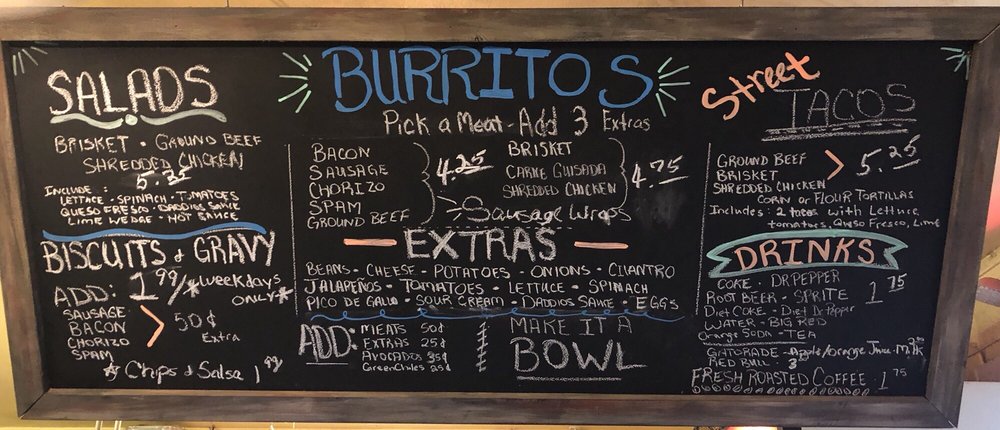 SALADS
BRISKET · GROUND BEEF
SHREDDED CHICKEN
5.25
INCLUDE:
LETTUCE · SPINACH · TOMATOES
QUESO FRESCO · DADDIOS SAUCE
LIME WEDGE · HOT SAUCE
BISCUITS & GRAVY
1.99/*WEEKDAYS ONLY*
ADD:
SAUSAGE
BACON
CHORIZO
SPAM
50¢ Extra
* Chips & Salsa 1.99
BURRITOS
Pick a Meat - Add 3 Extras
BACON
SAUSAGE
CHORIZO
SPAM
GROUND BEEF
4.25
BRISKET
CARNE GUISADA
SHREDDED CHICKEN
4.75
Sausage Wraps
EXTRAS
BEANS · CHEESE · POTATOES · ONIONS · CILANTRO
JALAPEÑOS · TOMATOES · LETTUCE · SPINACH
PICO DE GALLO · SOUR CREAM · DADDIOS SAUCE · EGGS
ADD:
MEATS 50¢
EXTRAS 25¢
AVOCADOS 35¢
GREEN CHILES 25¢
MAKE IT A
BOWL
Street
TACOS
GROUND BEEF
BRISKET
SHREDDED CHICKEN
5.25
CORN or FLOUR TORTILLAS
Includes: 2 tacos with Lettuce
tomatoes, Queso Fresco, Lime
DRINKS
COKE · DR PEPPER
ROOT BEER · SPRITE
1.75
Diet COKE · Diet Dr Pepper
WATER · BIG RED
Orange SODA · TEA
GATORADE · Apple/orange Juice · Milk
RED BULL 3
FRESH ROASTED COFFEE · 1.75